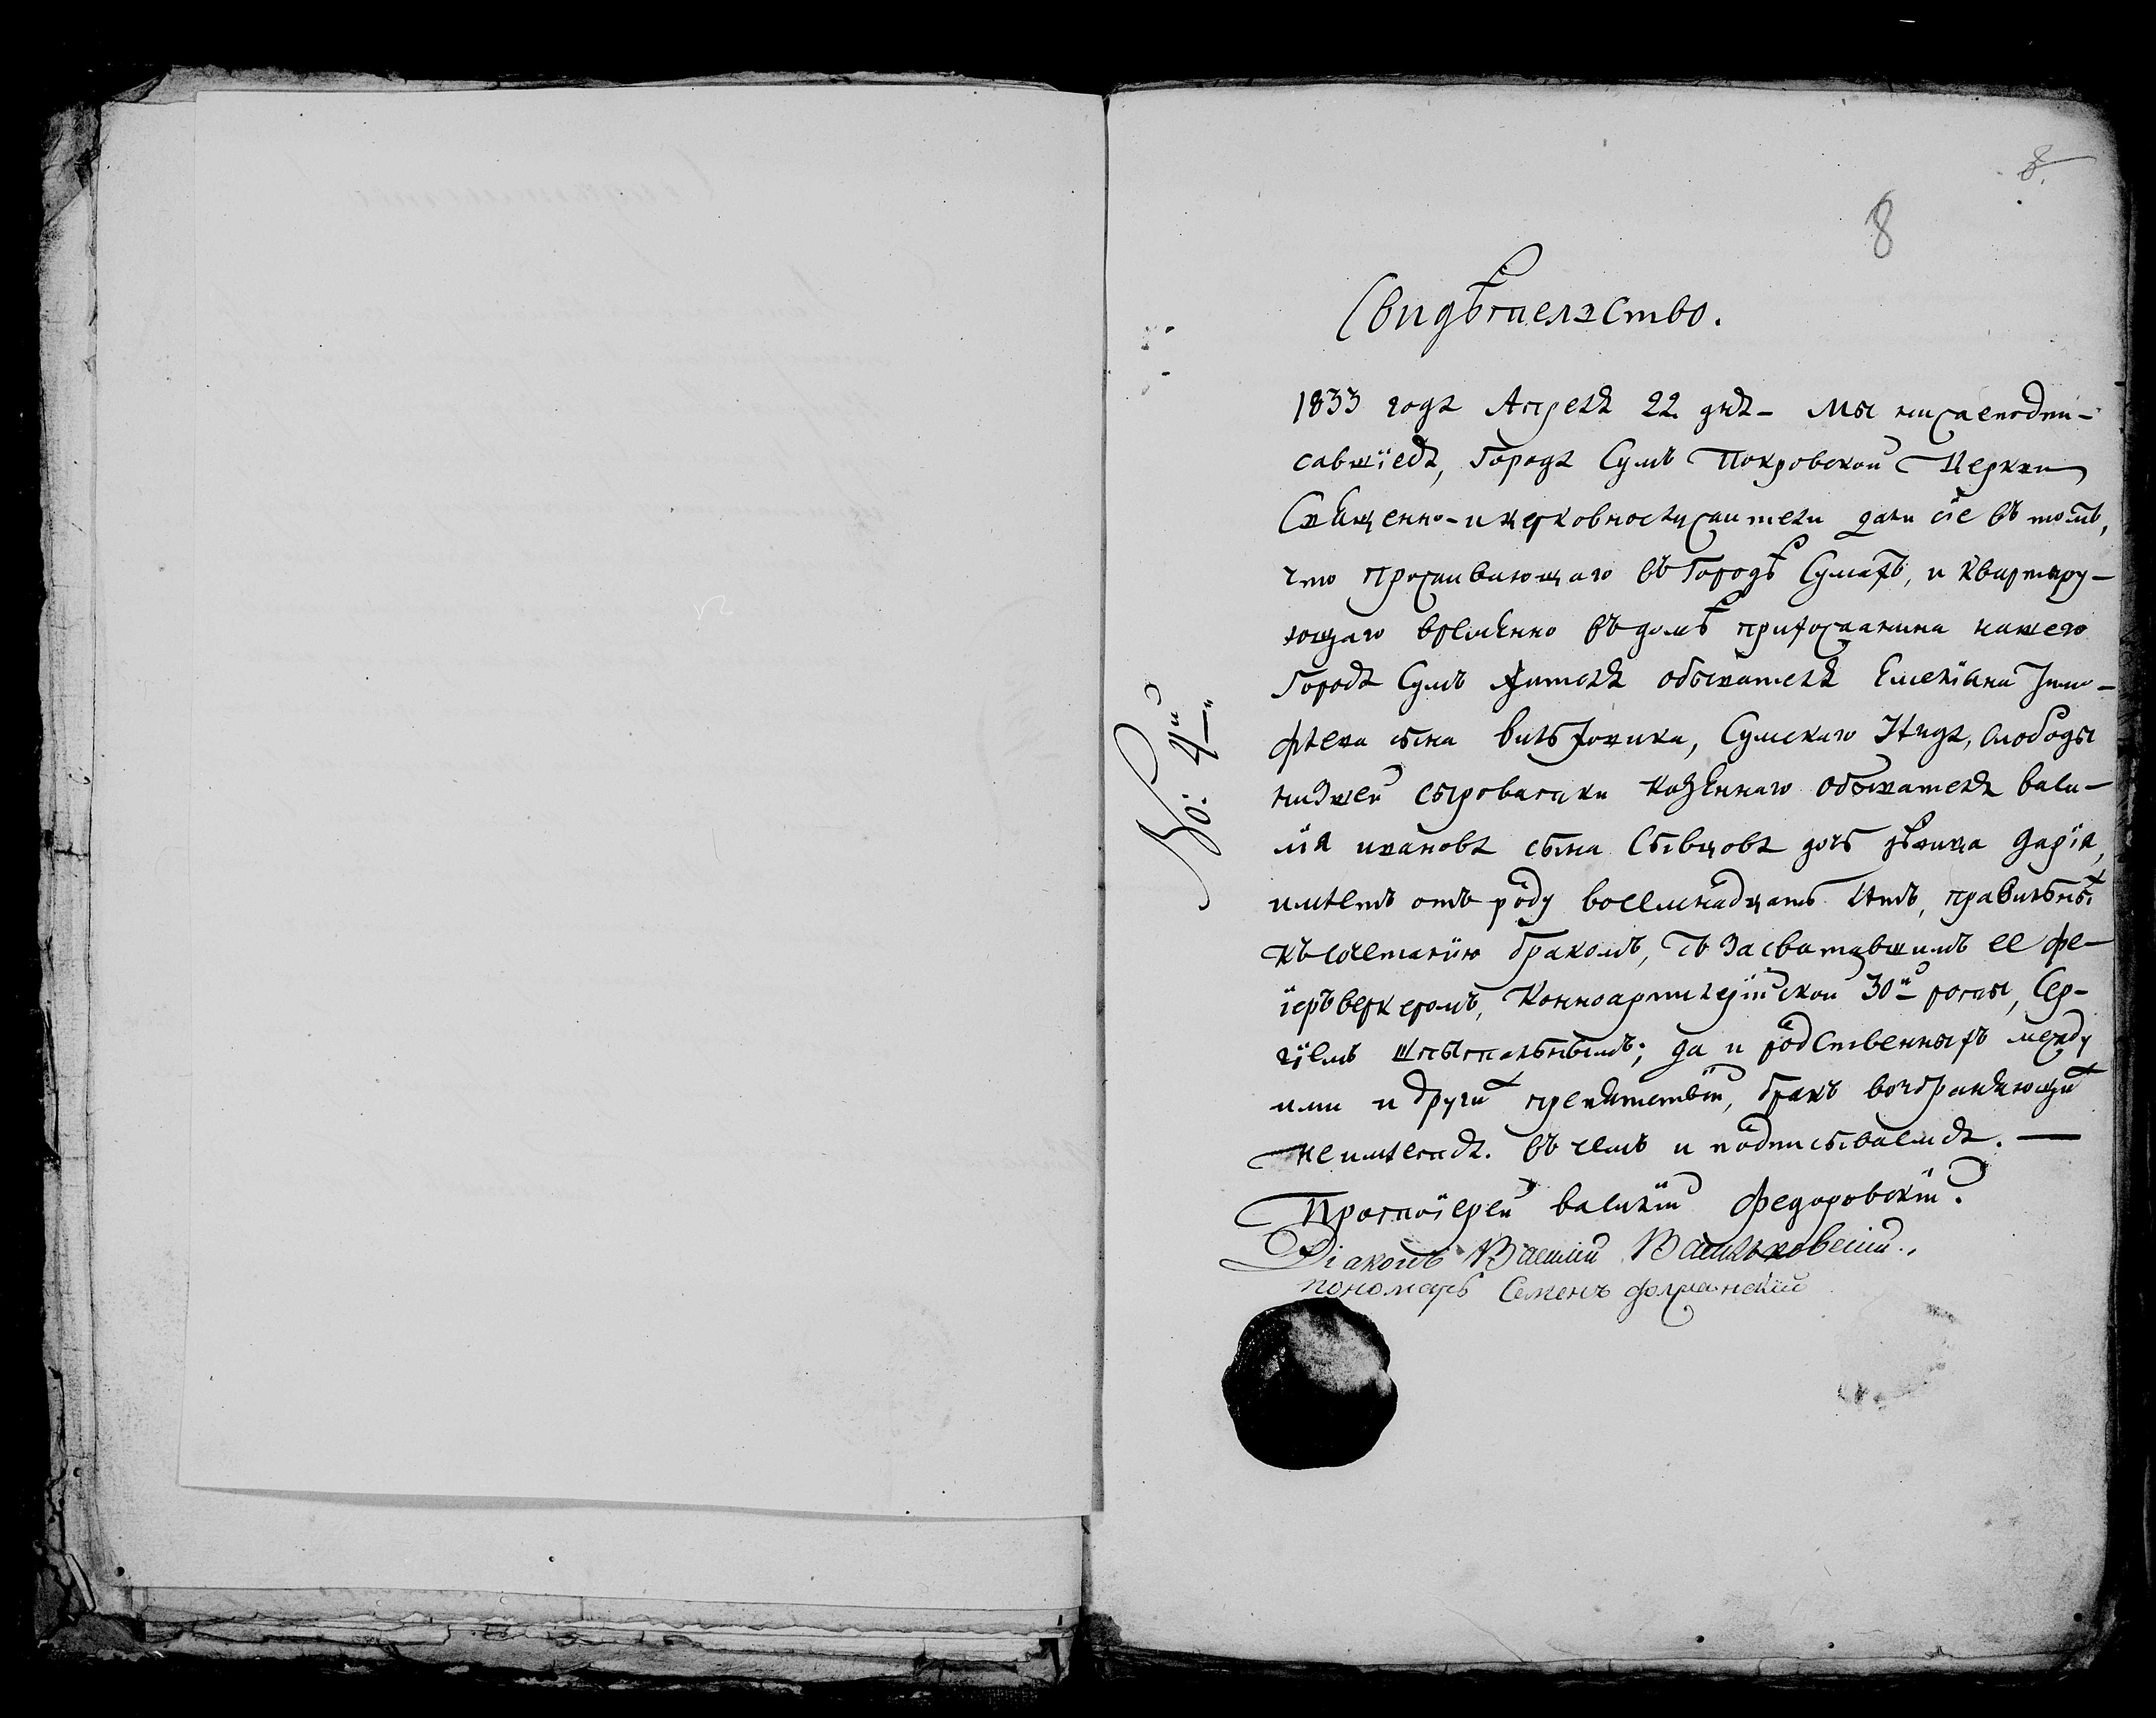 8.
8
Свидѣтелство.
1833 года Апреля 22. дня — Мы нижеподпи-
савшіеся, города Сумъ Покровской Церкви
Священно- и церковнослужители дали сіе въ томъ,
что проживающаго въ Городѣ Сумахъ, и квартиру-
ющаго временно въ домѣ прихожанина нашего
города Сумъ жителя обывателя Емеліана Тимо-
фѣева сына, Сумскаго Уѣзда, слободы
нижней сыроватки казеннаго обывателя Васи-
лія иванова сына Сѣвцова дочь дѣвица Дарія,
имѣетъ отъ роду восемнадцать лѣтъ,
къ сочетанію бракомъ, съ засватавшимъ ее фе-
іерверкеромъ, Конноартиллерійской 30й роты, Сер-
гіемъ; да и родственныхъ между
ими и другихъ препятствій, бракъ возбраняющихъ
не имѣется. Въ чемъ и подписываемся. —
Протоіерей Василій Федоровскій.
Діаконъ Василій Васильковскій.
пономарь Семенъ
№: 4й